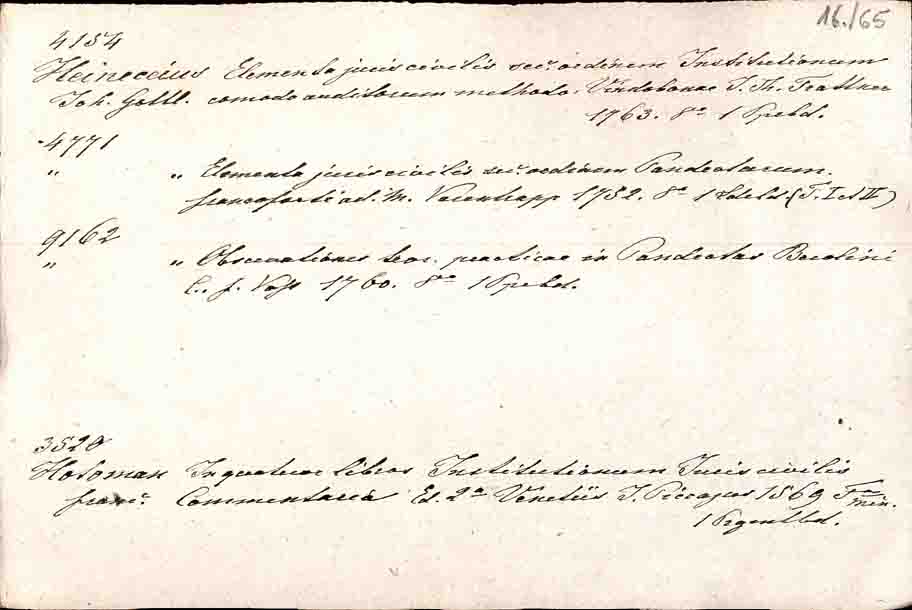 16./65
4154
Heineccius Elementa juris civilis sec. ordinem Institutionum
Joh. Gottl. comodo auditorum methodo. Vindobonae J. Th. Trattner
1763. 8º 1 Ppbd.
4771
" " Elementa juris civilis sec. ordinem Pandectarum.
Francoforti ad. M. Varentrapp 1752. 8º 1 (T. I et II)
9162
" " Observationes teor. practicae in Pandectas Berolini
C. f. Voss 1760. 8º 1 Ppbd.
3520
Hotoman In quatuor libros Institutionum Juris civilis
franc. Commentaria Ed. 2ª Venetiis J. 1569 Fº
min.
1 Pergmtbd.